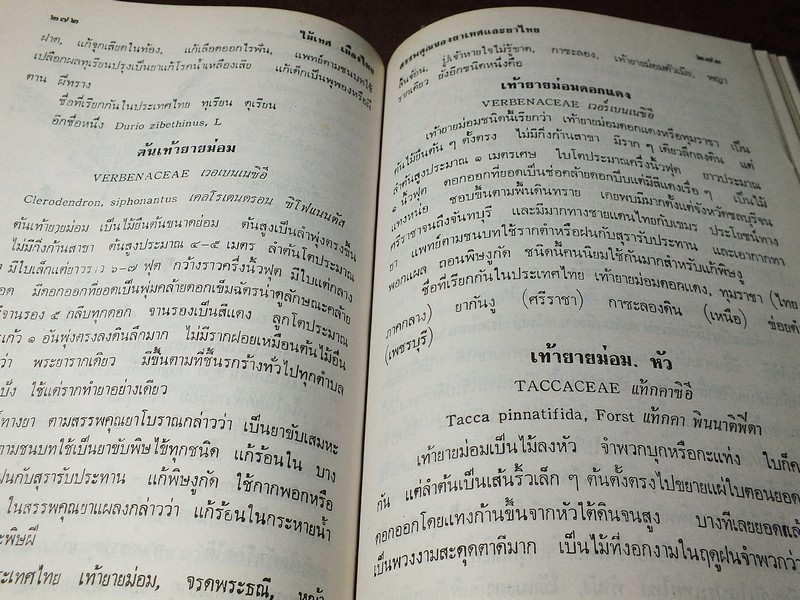 ๒๗๒
ไม้เทศ เมืองไทย
ฝาด, แก้จุกเสียดในท้อง, แก้เลือดออกไรฟัน, แพทย์ตามชนบทใช้
เปลือกผลทุเรียนปรุงเป็นยาแก้โรคน้ำเหลืองเสีย แก้เด็กเป็นพุพองหรือมี
ตาน ผีทราง
ชื่อที่เรียกกันในประเทศไทย ทุเรียน ดุเรียน
อีกชื่อหนึ่ง Durio zibethinus, L
ต้นเท้ายายม่อม
VERBENACEAE เวอเบนเนซิอี
Clerodendron, siphonantus เคลโรเดนดรอน ซิโฟแนนตัส
ต้นเท้ายายม่อม เป็นไม้ยืนต้นขนาดย่อม ต้นสูงเป็นลำพุ่งตรงขึ้น
ไม่มีกิ่งก้านสาขา ต้นสูงประมาณ ๔-๕ เมตร ลำต้นโตประมาณ
มีใบเล็กแต่ยาวราว ๖-๗ ฟุต กว้างราวครึ่งนิ้วฟุต มีใบแต่กลาง
อด มีดอกออกที่ยอดเป็นพุ่มคล้ายดอกเข็มฉัตรน่าดูลักษณะคล้าย
จานรอง ๕ กลีบทุกดอก จานรองเป็นสีแดง ลูกโตประมาณ
แก้ว ๑ อันพุ่งตรงลงดินลึกมาก ไม่มีรากฝอยเหมือนต้นไม้อื่น
ว่า พระยารากเดียว มีขึ้นตามที่ชื้นรกร้างทั่วไปทุกตำบล
ใช้แต่รากทำยาอย่างเดียว
ทางยา ตามสรรพคุณยาโบราณกล่าวว่า เป็นยาขับเสมหะ
ตามชนบทใช้เป็นยาขับพิษไข้ทุกชนิด แก้ร้อนใน บาง
ฝนกับสุรารับประทาน แก้พิษงูกัด ใช้กากพอกหรือ
ในสรรพคุณยาแผลงกล่าวว่า แก้ร้อนในกระหายน้ำ
พิษฝี
ประเทศไทย เท้ายายม่อม, จรดพระธณี, หญ้า
สรรพคุณของยาเทศและยาไทย
๒๗๓
ลิ้นจ้อน, ปู่เจ้าหายใจไม่รู้ขาด, กาซะลอง, เท้ายายม่อมตัวเมีย, พญา
รากเดียว ยังอีกชนิดหนึ่งคือ
เท้ายายม่อมดอกแดง
VERBENACEAE เวอร์เบนเนซิอี
เท้ายายม่อมชนิดนี้เรียกว่า เท้ายายม่อมดอกแดงหรือทุมราชา เป็น
ต้นไม้ยืนต้น ๆ ตั้งตรง ไม่มีกิ่งก้านสาขา มีราก ๆ เดียวลึกลงดิน แต่
ลำต้นสูงประมาณ ๑ เมตรเศษ ใบโตประมาณครึ่งนิ้วฟุต ยาวประมาณ
๑ นิ้วฟุต ดอกออกที่ยอดเป็นช่อคล้ายดอกปีบแต่มีสีแดงเรื่อ ๆ เป็นไม้
แทงหน่อ ชอบขึ้นตามพื้นดินทราย เคยพบมีมากตั้งแต่จังหวัดชลบุรีจน
ศรีราชาจนถึงจันทบุรี และมีมากทางชายแดนไทยกับเขมร ประโยชน์ทาง
ยา แพทย์ตามชนบทใช้รากตำหรือฝนกับสุรารับประทาน และเอากากทา
พอกแผล ถอนพิษงูกัด ชนิดนี้คนนิยมใช้กันมากสำหรับแก้พิษงู
ชื่อที่เรียกกันในประเทศไทย เท้ายายม่อมดอกแดง, ทุมราชา (ไทย
ภาคกลาง) ยากันงู (ศรีราชา) กาซะลองดิน (เหนือ) ช่อยดำ
(เพชรบุรี)
เท้ายายม่อม. หัว
TACCACEAE แท้กคาซิอี
Tacca pinnatifida, Forst แท้กคา พินนาติฟิดา
เท้ายายม่อมเป็นไม้ลงหัว จำพวกบุกหรือกะแท่ง ใบก็ค
กัน แต่ลำต้นเป็นเส้นริ้วเล็ก ๆ ต้นตั้งตรงไปขยายแผ่ใบตอนยอด
ดอกออกโดยแทงก้านขึ้นจากหัวใต้ดินจนสูง บางทีเลยยอดแล้
เป็นพวงงามสะดุดตาดีมาก เป็นไม้ที่งอกงามในฤดูฝนจำพวกว่า